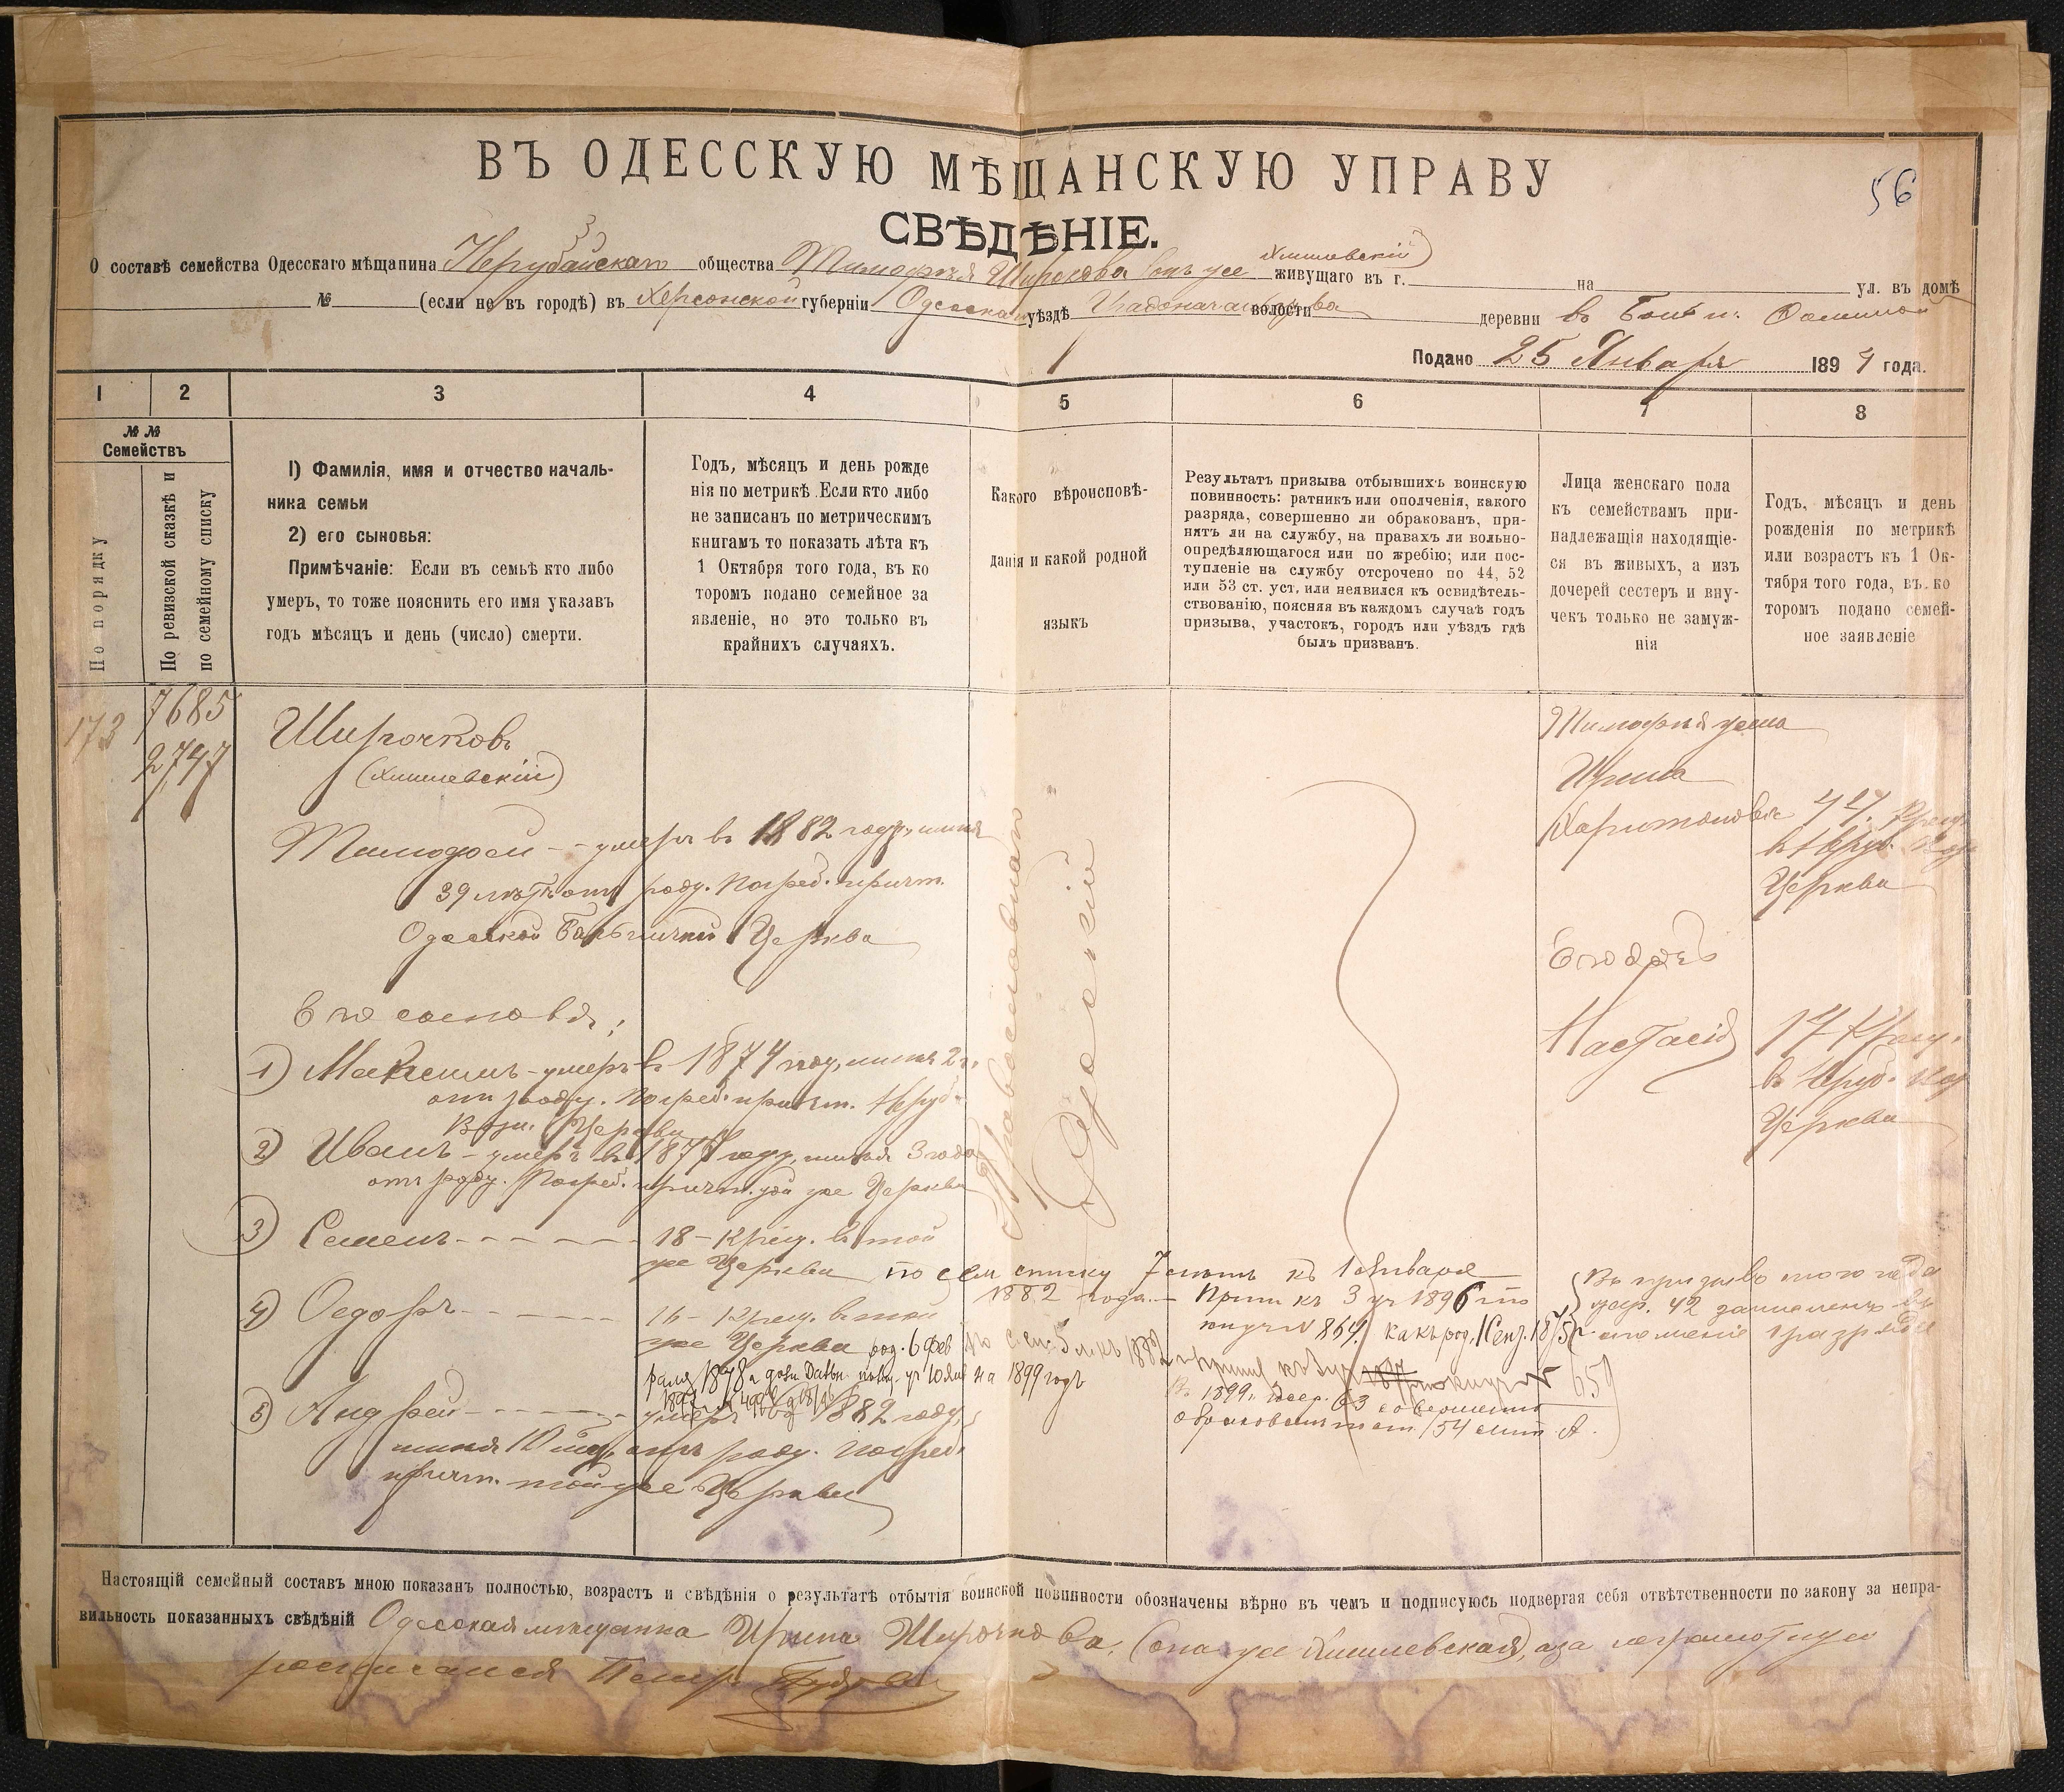 ВЪ ОДЕССКУЮ МѢЩАНСКУЮ УПРАВУ
56
СВѢДѢНІЕ.
О составѣ семейства Одесскаго мѣщанина Нерубайскаго общества Тимофея Широкова онъ же Хмилевскій) живущаго въ г. на ул. въ домѣ
№ (если не въ городѣ) въ Херсонской губерніи Одесскаго уѣздѣ Градоначальства волости деревни
Подано 25 Января 1894 года.
1 2 3 4 5 6 7 8
№ №
Семействъ
По порядку
По ревизской сказкѣ и
по семейному списку
I) Фамилія, имя и отчество началь-
ника семьи
2) его сыновья:
Примѣчаніе: Если въ семьѣ кто либо
умеръ, то тоже пояснить его имя указавъ
годъ мѣсяцъ и день (число) смерти.
Годъ, мѣсяцъ и день рожде
нія по метрикѣ. Если кто либо
не записанъ по метрическимъ
книгамъ то показать лѣта къ
1 Октября того года, въ ко
торомъ подано семейное за
явленіе, но это только въ
крайнихъ случаяхъ.
Какого вѣроисповѣ-
данія и какой родной
языкъ
Результатъ призыва отбывшихъ воинскую
повинность: ратникъ или ополченія, какого
разряда, совершенно ли обракованъ, при-
нятъ ли на службу, на правахъ ли вольно-
опредѣляющагося или по жребію; или пос-
тупленіе на службу отсрочено по 44, 52
или 53 ст. уст. или неявился къ освидѣтель-
ствованію, поясняя въ каждомъ случаѣ годъ
призыва, участокъ, городъ или уѣздъ гдѣ
былъ призванъ.
Лица женскаго пола
къ семействамъ при-
надлежащія находящіе-
ся въ живыхъ, а изъ
дочерей сестеръ и вну-
чекъ только не замуж-
нія
Годъ, мѣсяцъ и день
рожденія по метрикѣ
или возрастъ къ 1 Ок-
тября того года, въ ко
торомъ подано семей-
ное заявленіе
173
7685
2747
Широчковъ
(Хмилевскій)
Тимофей - - умеръ въ 1882 году, имѣя
39 лѣтъ отъ роду. Погреб. причт.
Одесской Церкви
Его сыновья:
1) Максимъ - умеръ въ 1874 году, имѣя 2 г.
отъ роду. Погреб. причт. Неруб.
Церкви
2) Иванъ - умеръ въ 1877 году, имѣя 3 года
отъ роду. Погреб. причт. той же Церкви
3) Семенъ - - - - - 18 - Крещ. въ той
же Церкви по сем списку 7 лѣтъ къ 1 Января
1882 года. - Прип къ 3 уч 1896 по
книгѣ N 864. какъ род. 1 Сент. 1875 г.
Въ призывъ того года
жер. 42 зачисленъ въ
ополченіе 1 разряда
4) Федоръ - - - - 16 - Крещ. въ той
же Церкви род. 6 фев
раля 1878 на 1899 годъ
659
В 1899 г. жер. 63 совершенно
обракованъ лит. А.
5) Андрей - - - - - умеръ въ 1882 году,
имѣя 10 мѣс. отъ роду. Погреб.
причт. той же Церкви
Православнаго
Русскій
Тимофея жена
Ирина
Харитоновна 47. Крещ.
въ Неруб. Пок
Церкви
Его дочь
Настасія 17 Крещ.
въ Неруб. Пок
Церкви
Настоящій семейный составъ мною показанъ полностью, возрастъ и свѣдѣнія о результатѣ отбытія воинской повинности обозначены вѣрно въ чемъ и подписуюсь подвергая себя отвѣтственности по закону за непра-
вильность показанныхъ свѣдѣній Одесская мѣщанка Ирина Широчкова, (она же Хмилевская), а за неграмотную
росписался Петръ